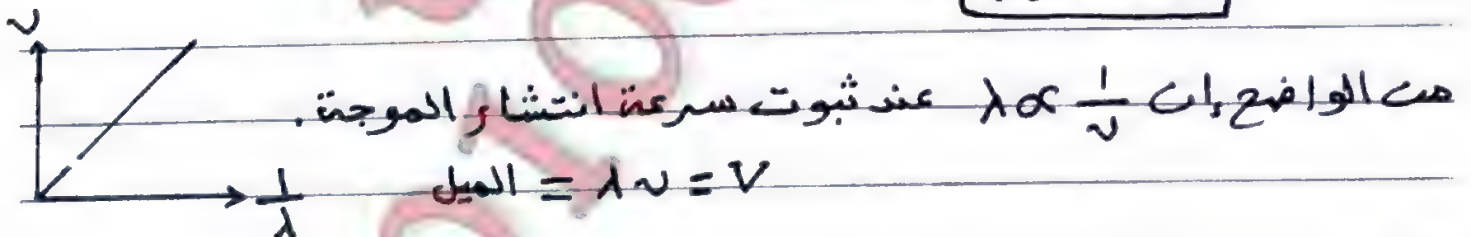 ν
من الواضح إن λ ∝ 1/ν عند ثبوت سرعة انتشار الموجة.
الميل = λν = V
1/λ